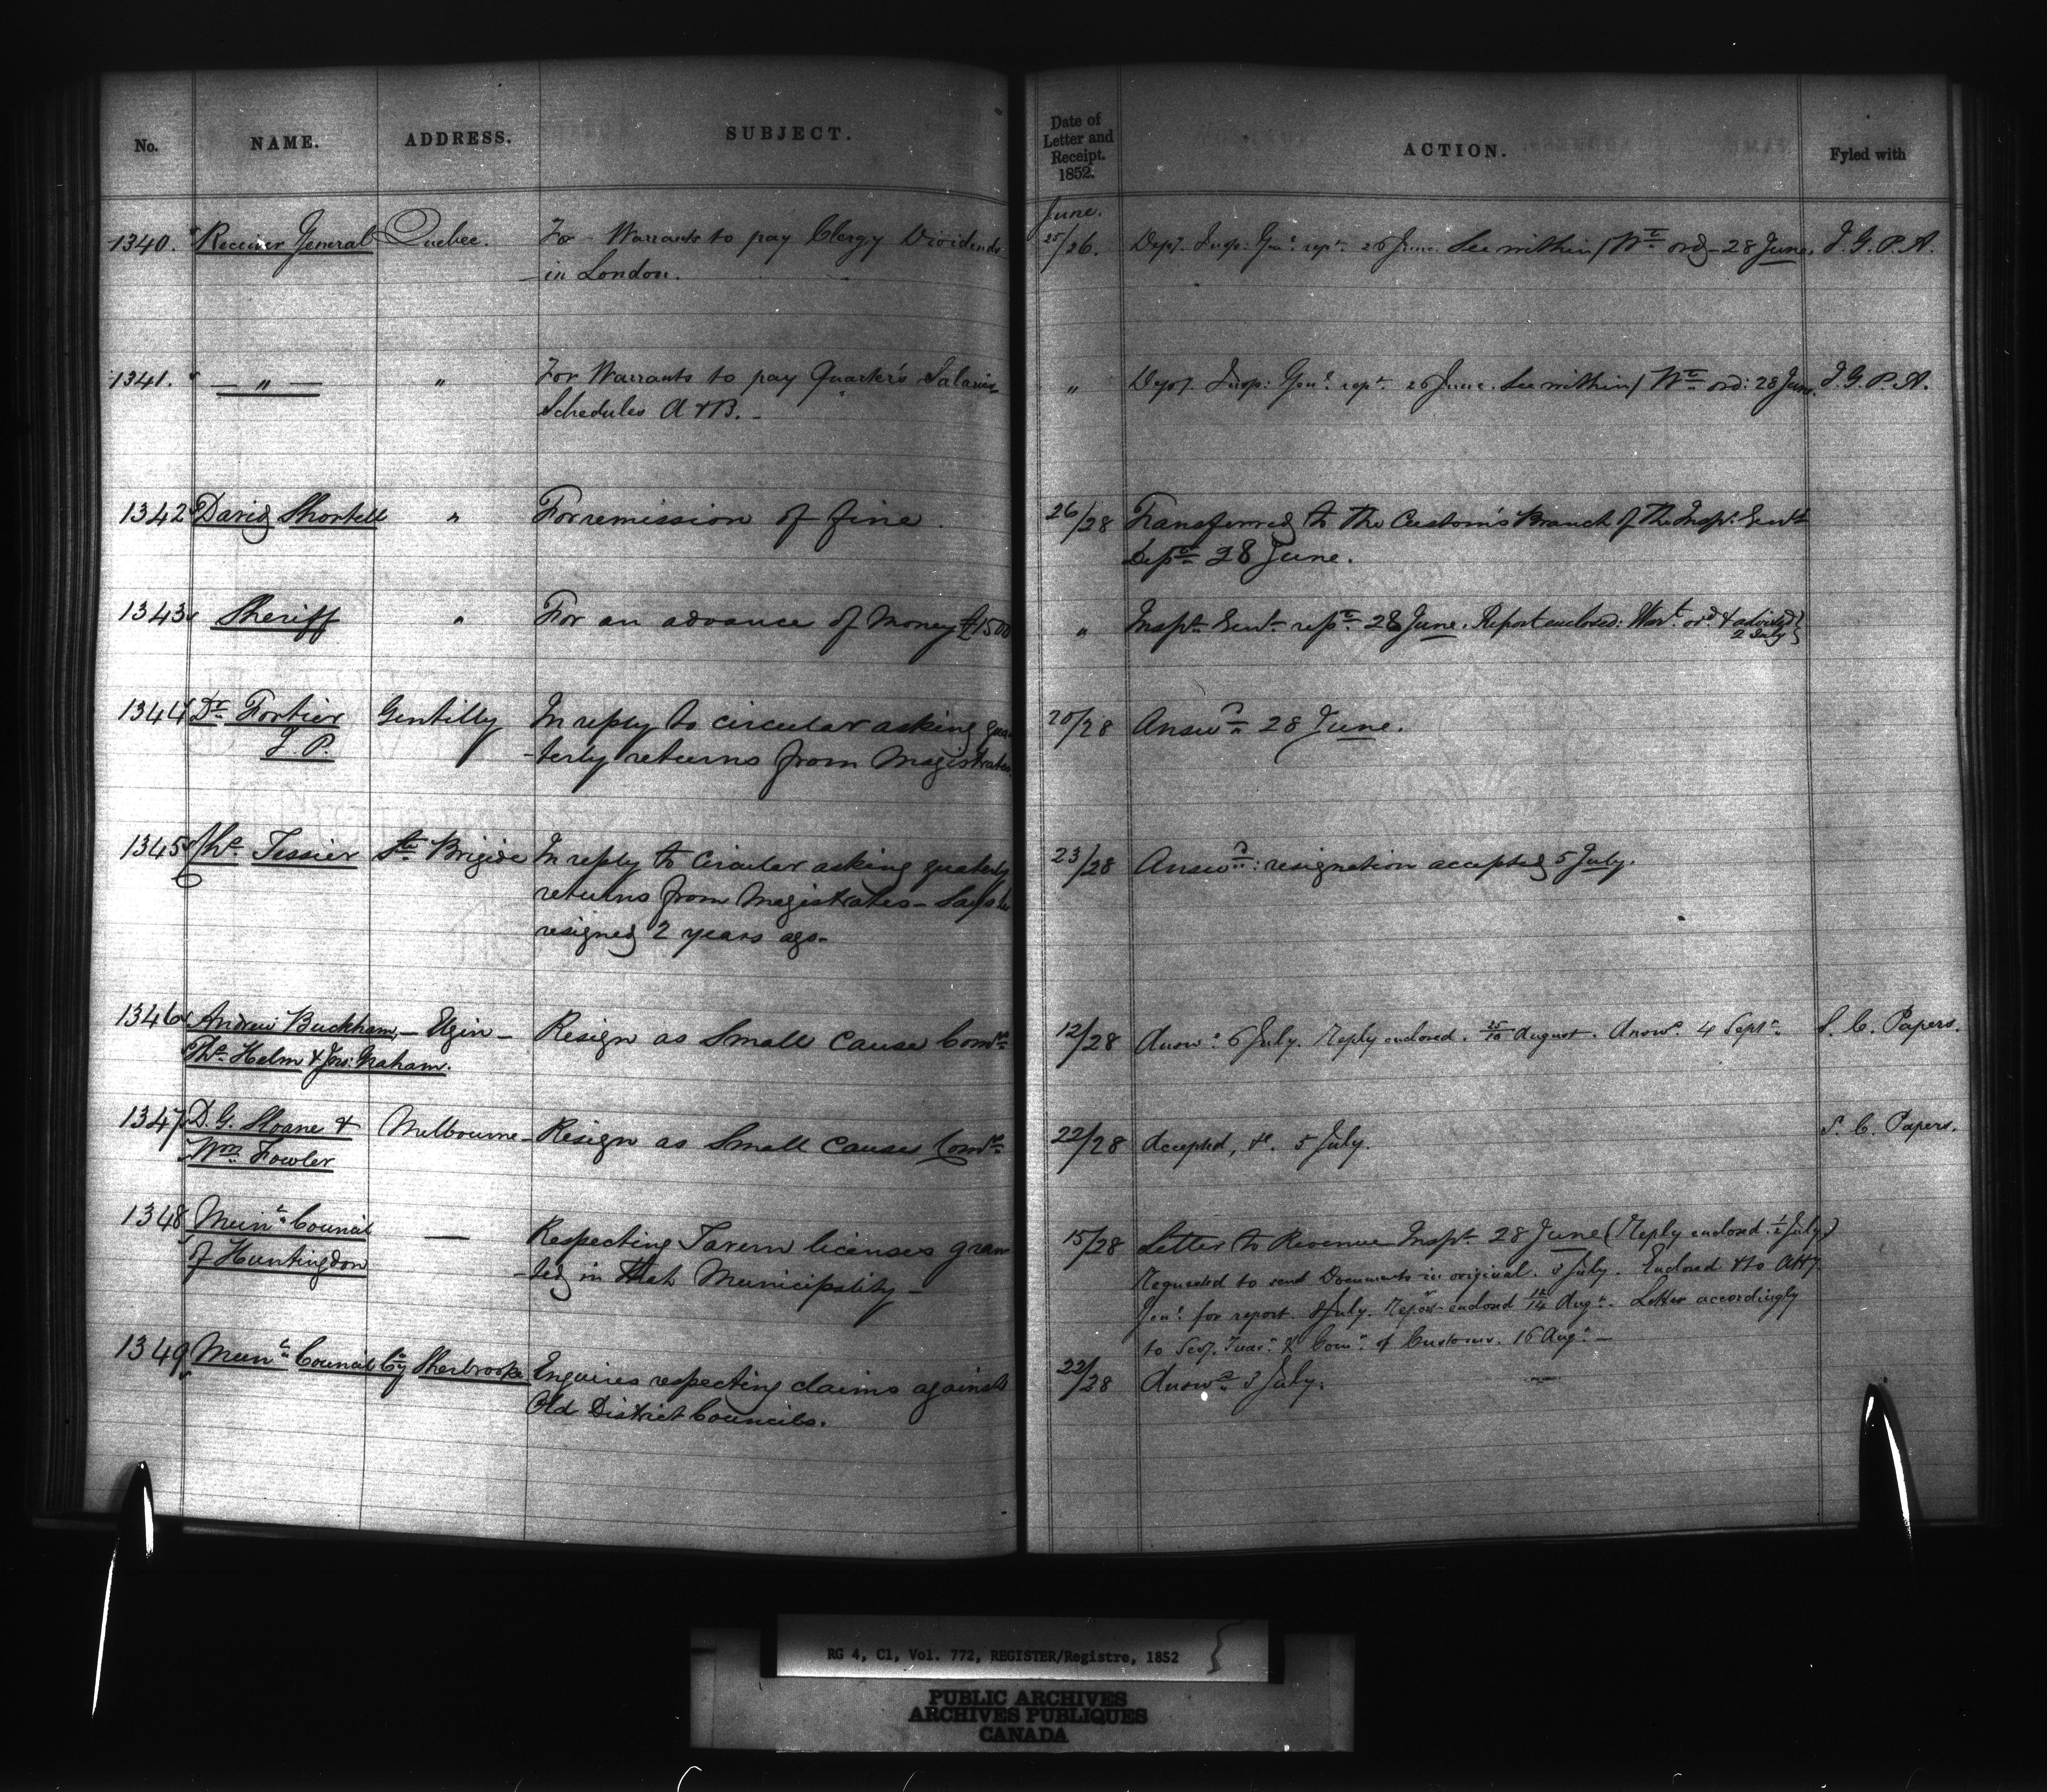 No. NAME. ADDRESS. SUBJECT. Date of Letter and Receipt. 1852. ACTION. Fyled with
June.
1340. Receiver General Quebec. For Warrants to pay Clergy Dividends 25/26. Dep. Insp: Genl. rept. 26 June. See within / Wt. ord 28 June. I. G. P. A.
in London.
1341. — " — " For Warrants to pay Quarter's Salaries " Depy. Insp: Genl. rept. 26 June. See within / Wt. ord: 28 June. I. G. P. A.
Schedules A & B. -
1342 David Shortell " For remission of fine. 26/28 Transferred to the Custom's Branch of the Inspr. Genl's
Dept. 28 June.
1343 Sheriff " For an advance of Money £1500 " Inspr. Genl. rept. 28 June. Report enclosed: Wart. ord. & advised
2 July
1344 Dr. Fortier Gentilly In reply to circular asking quar 20/28 Answd. 28 June.
J. P. -terly returns from Magistrates
1345 Ths. Tessier Ste Brigide In reply to Circular asking quaterly 23/28 Answd.: resignation accepted 5 July.
returns from Magistrates - Says he
resigned 2 years ago -
1346 Andrew Buckham, - Elgin - Resign as Small Cause Comrs. 12/28 Answd. 6 July. Reply enclosed. 25/10 August. Answd. 4 Septr. S. C. Papers.
Ths. Helm & Jos: Graham.
1347 D. G. Sloane & Melbourne - Resign as Small Causes Comrs. 22/28 Accepted, &c. 5 July. S. C. Papers.
Wm. Fowler
1348 Munl. Council — Respecting Tavern licenses gran 15/28 Letter to Revenue Inspr. 28 June (Reply enclosed 1/2 July)
of Huntingdon -ted in that Municipality - Requested to send Documents in original. 3 July. Enclosed & to Atty
Genl. for report. 8 July. Report enclosed 12/14 Augt. Letter accordingly
to Secy. Treasr. & Comr. of Customs. 16 Augt. -
1349 Munl. Council Cy Sherbrooke Enquires respecting claims against 22/28 Answd. 3 July.
Old District Councils.
RG 4, C1, Vol. 772, REGISTER/Registre, 1852
PUBLIC ARCHIVES
ARCHIVES PUBLIQUES
CANADA